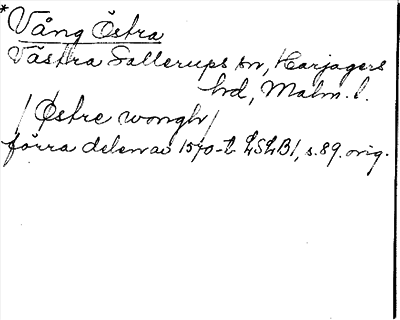 *Vång Östra
Västra Sallerups sn, Harjagers
hd, Malm. l.
/Østre wongh/
förra delen av 1570-t LSLB1, s. 89. orig.